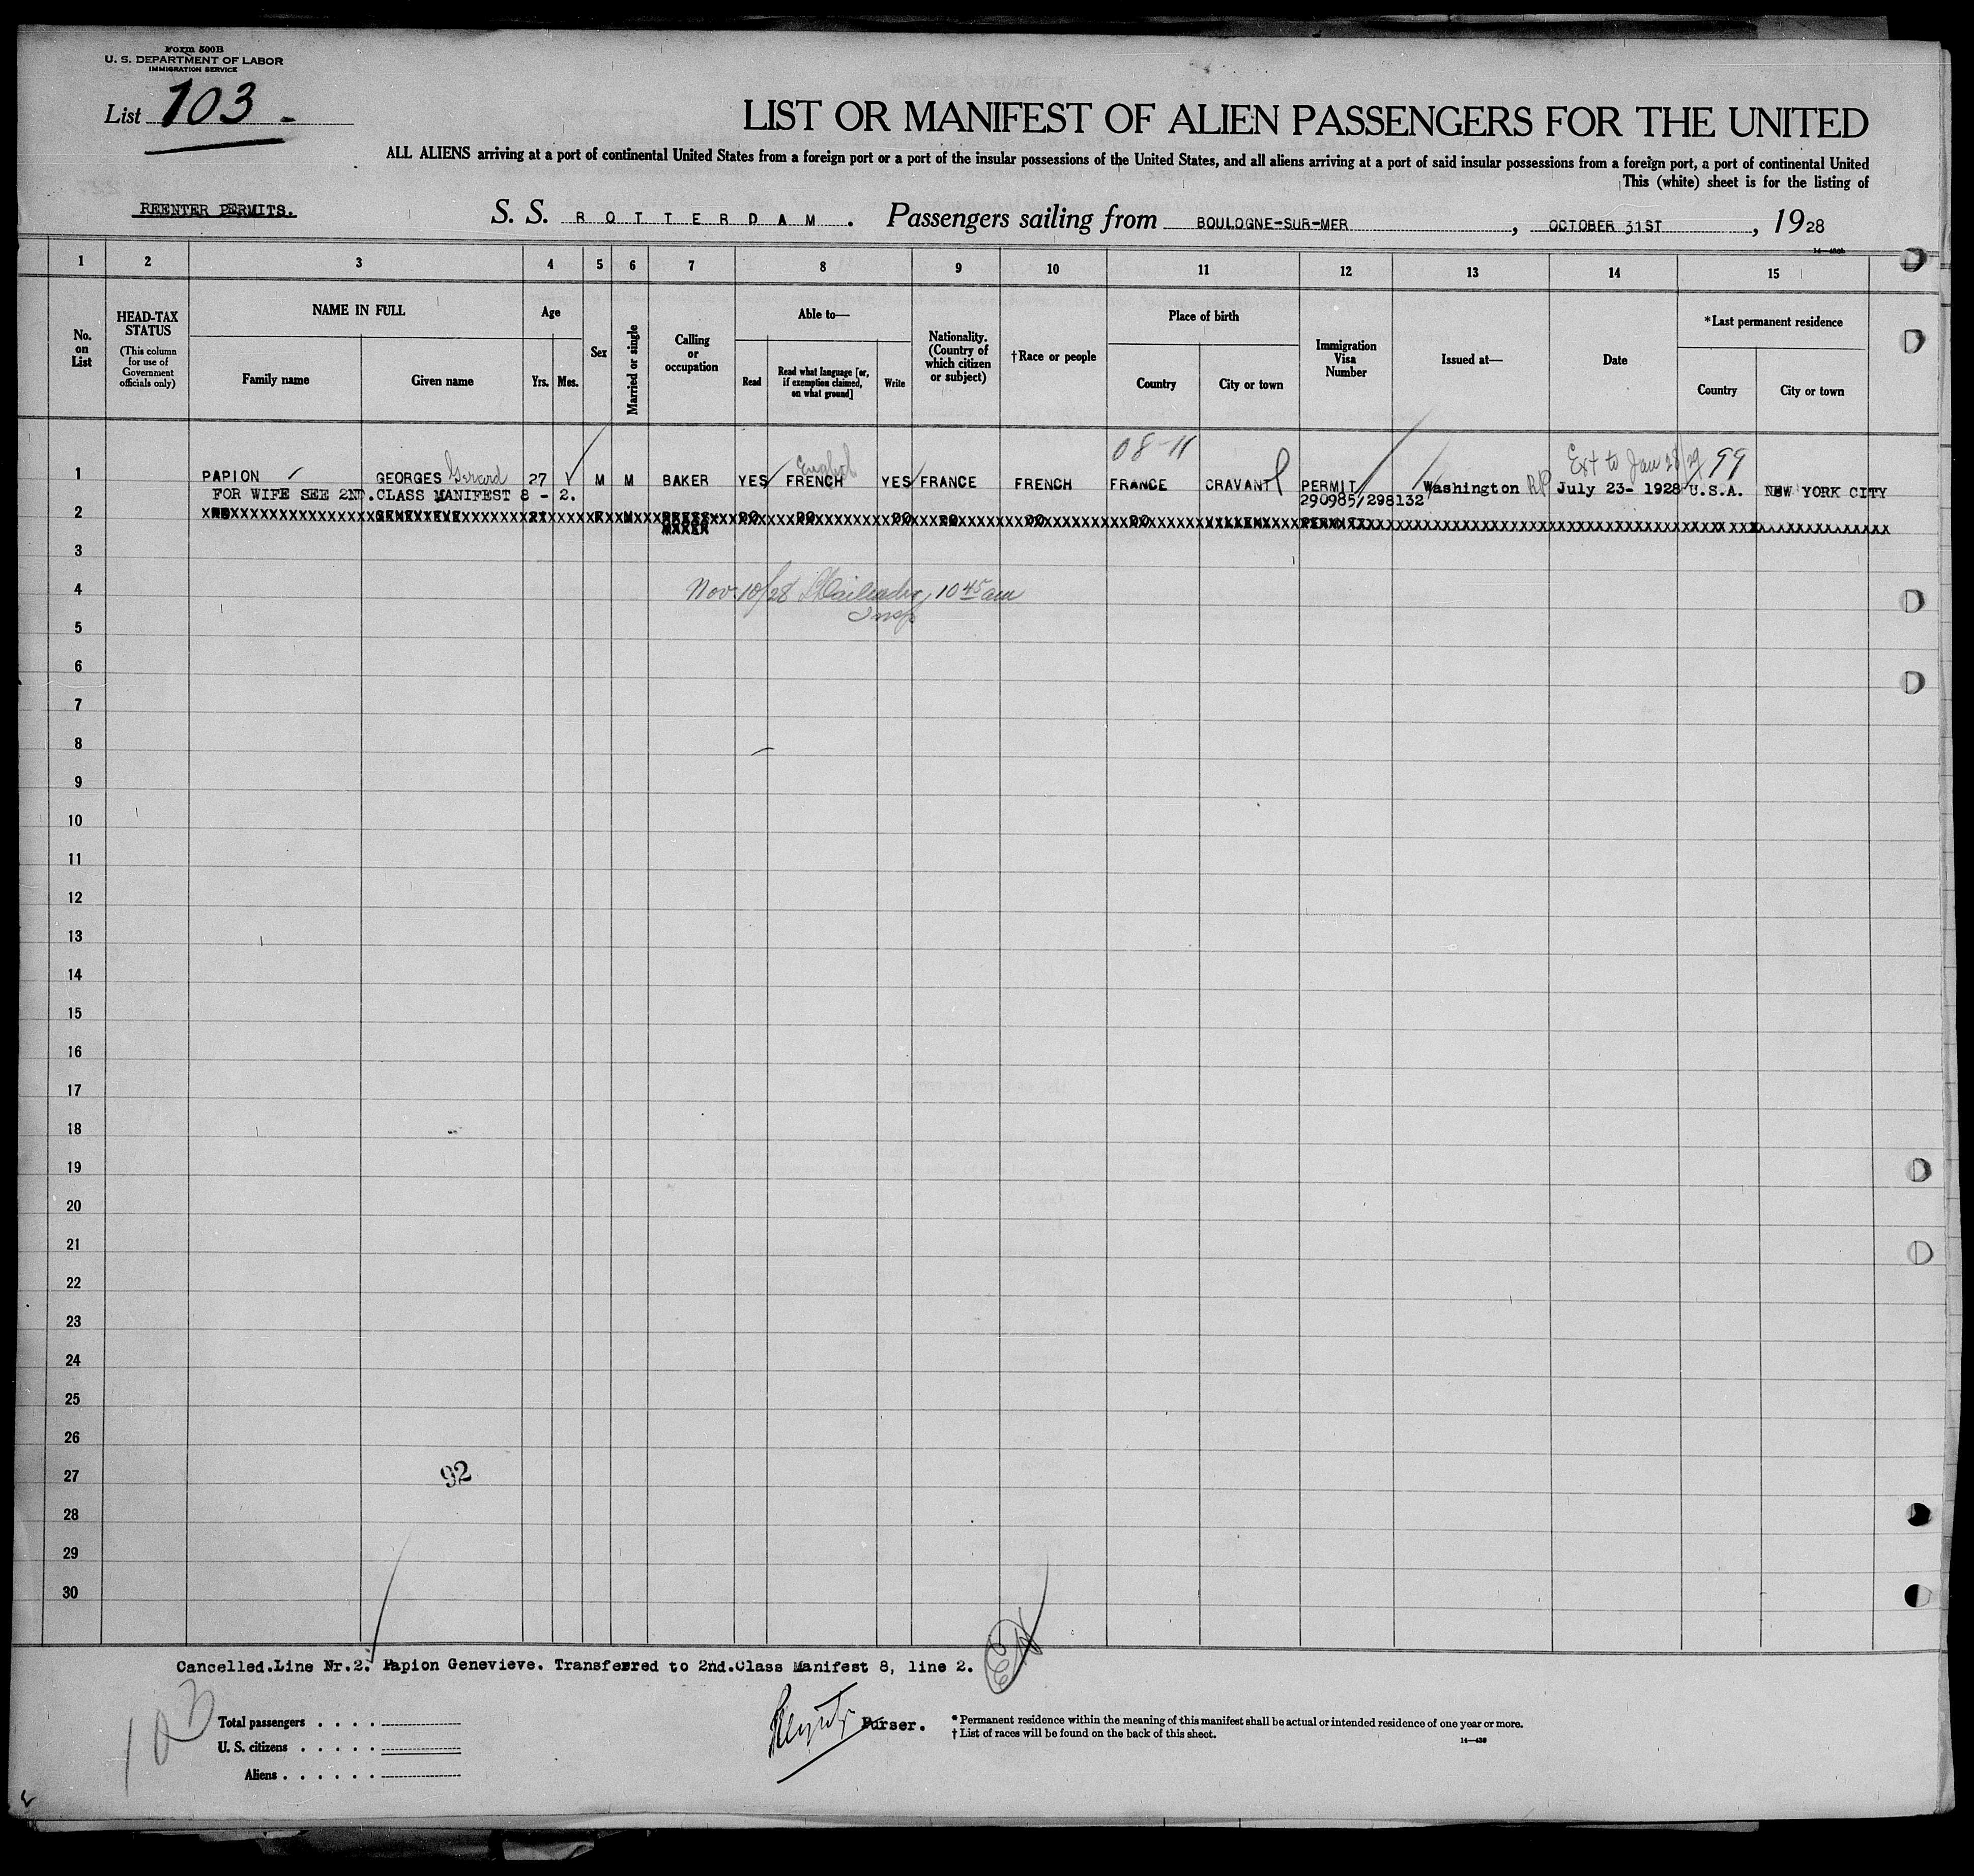 Form 500B
U. S. DEPARTMENT OF LABOR
IMMIGRATION SERVICE
List 103 -
LIST OR MANIFEST OF ALIEN PASSENGERS FOR THE UNITED
ALL ALIENS arriving at a port of continental United States from a foreign port or a port of the insular possessions of the United States, and all aliens arriving at a port of said insular possessions from a foreign port, a port of continental United
This (white) sheet is for the listing of
REENTER PERMITS.
S. S. ROTTERDAM. Passengers sailing from BOULOGNE-SUR-MER, OCTOBER 31ST, 1928
1 2 3 4 5 6 7 8 9 10 11 12 13 14 15
No. on List
HEAD-TAX STATUS
(This column for use of Government officials only)
NAME IN FULL
Family name
Given name
Age
Yrs.
Mos.
Sex
Married or single
Calling or occupation
Able to—
Read
Read what language [or, if exemption claimed, on what ground]
Write
Nationality. (Country of which citizen or subject)
†Race or people
Place of birth
Country
City or town
Immigration Visa Number
Issued at—
Date
*Last permanent residence
Country
City or town
08-11
English
Ext to Jan 28/29 99
1 PAPION GEORGES Gerard 27 M M BAKER YES FRENCH YES FRANCE FRENCH FRANCE CRAVANT PERMIT Washington RP July 23- 1928 U.S.A. NEW YORK CITY
FOR WIFE SEE 2ND.CLASS MANIFEST 8 - 2. 290985/298132
2 GENEVIEVE 21 F M DRESS- DO DO DO DO DO DO PERMIT
MAKER
3
4
Nov. 10/28 10 45 am
Insp
5
6
7
8
9
10
11
12
13
14
15
16
17
18
19
20
21
22
23
24
25
26
27
92
28
29
30
Cancelled.Line Nr.2. Papion Genevieve. Transferred to 2nd.Class Manifest 8, line 2.
Total passengers
U. S. citizens
Aliens
Purser.
* Permanent residence within the meaning of this manifest shall be actual or intended residence of one year or more.
† List of races will be found on the back of this sheet.
14—436